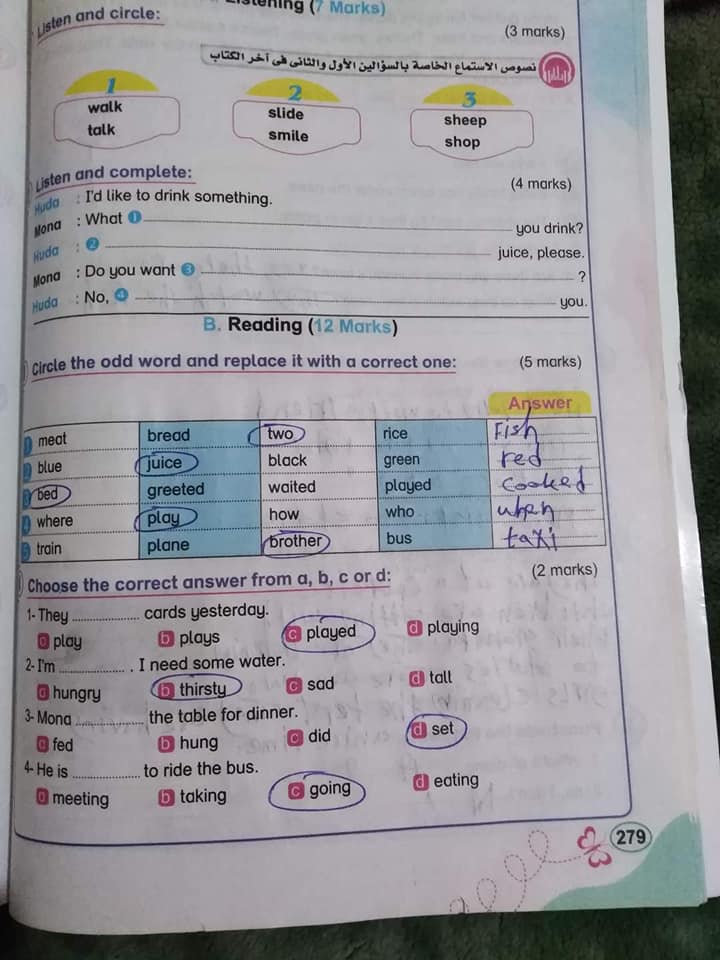 Listening (7 Marks)
Listen and circle:
(3 marks)
نصوص الاستماع الخاصة بالسؤالين الأول والثانى فى آخر الكتاب
1
walk
talk
2
slide
smile
3
sheep
shop
Listen and complete:
(4 marks)
Huda : I'd like to drink something.
Mona : What 1 you drink?
Huda : 2 juice, please.
Mona : Do you want 3 ?
Huda : No, 4 you.
B. Reading (12 Marks)
Circle the odd word and replace it with a correct one: (5 marks)
Answer
1 meat bread two rice Fish
2 blue juice black green red
3 bed greeted waited played cooked
4 where play how who when
5 train plane brother bus taxi
Choose the correct answer from a, b, c or d: (2 marks)
1- They .................. cards yesterday.
a play b plays c played d playing
2- I'm .................. . I need some water.
a hungry b thirsty c sad d tall
3- Mona .................. the table for dinner.
a fed b hung c did d set
4- He is .................. to ride the bus.
a meeting b taking c going d eating
279